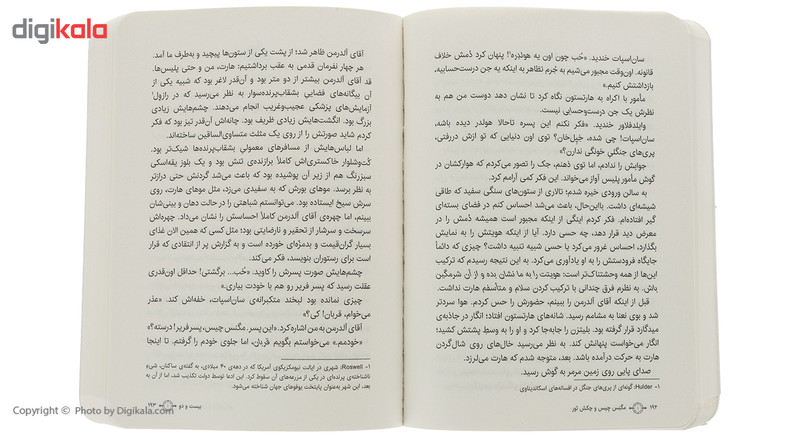 digikala
سان‌اسپات خندید. «خُب چون اون یه هولدِره¹! پنهان کرد دُمش خلاف
قانونه. اون‌وقت مجبور می‌شیم به جُرم تظاهر به اینکه یه جن درست‌حسابیه،
بازداشتش کنیم.»
مأمور با اکراه به هارتستون نگاه کرد تا نشان دهد دوست من هم به
نظرش یک جن درست‌وحسابی نیست.
وایلدفلاور خندید. «فکر نکنم این پسره تاحالا هولدر دیده باشه،
سان‌اسپات! چی شده، خپل‌خان؟ توی اون دنیایی که تو ازش دررفتی،
پری‌های جنگلیِ خونگی ندارن؟»
جوابش را ندادم، اما توی ذهنم، جک را تصور می‌کردم که هوارکشان در
گوش مأمور پلیس آواز می‌خواند. این فکر کمی آرامم کرد.
به سالن ورودی خیره شدم؛ تالاری از ستون‌های سنگی سفید که طاقی
شیشه‌ای داشت. بااین‌حال، باعث می‌شد احساس کنم در فضای بسته‌ای
گیر افتاده‌ام. فکر کردم اینگی از اینکه مجبور است همیشه دُمش را در
معرض دید قرار دهد، چه حسی دارد. آیا از اینکه هویتش را به نمایش
بگذارد، احساس غرور می‌کرد یا حسی شبیه تنبیه داشت؟ چیزی که دائماً
جایگاه فرودستش را به او یادآوری می‌کرد. به این نتیجه رسیدم که ترکیب
این‌ها از همه وحشتناک‌تر است: هویتت را به ما نشان بده و از آن شرمگین
باش. به نظرم فرق چندانی با ترکیب کردن سلام و متأسفم هارت نداشت.
قبل از اینکه آقای آلدرمن را ببینم، حضورش را حس کردم. هوا سردتر
شد و بوی نعنا به مشامم رسید. شانه‌های هارتستون افتاد؛ انگار در جاذبه‌ی
میدگارد قرار گرفته بود. بلیتزن را جابه‌جا کرد و او را به وسطِ پشتش کشید؛
انگار می‌خواست پنهانش کند. به نظر می‌رسید خال‌های روی شال‌گردن
هارت به حرکت درآمده باشد. بعد، متوجه شدم که هارت می‌لرزد.
صدای پایی روی زمین مرمر به گوش رسید.
۱- Hulder: گونه‌ای از پری‌های جنگل در افسانه‌های اسکاندیناوی
۱۹۲ مگنِس چیس و چکش ثور
آقای آلدرمن ظاهر شد؛ از پشت یکی از ستون‌ها پیچید و به‌طرف ما آمد.
هر چهار نفرمان قدمی به عقب برداشتیم: هارت، من و حتی پلیس‌ها.
قد آقای آلدرمن بیشتر از دو متر بود و آن‌قدر لاغر بود که شبیه یکی از
آن بیگانه‌های فضاییِ بشقاب‌پرنده‌سوار به نظر می‌رسید که در رازوِل¹
آزمایش‌های پزشکی عجیب‌وغریب انجام می‌دهند. چشم‌هایش زیادی
بزرگ بود. انگشت‌هایش زیادی ظریف بود. چانه‌اش آن‌قدر تیز بود که فکر
کردم شاید صورتش را از روی یک مثلث متساوی‌الساقین ساخته‌اند.
اما لباس‌هایش از مسافرهای معمولیِ بشقاب‌پرنده‌ها شیک‌تر بود.
کُت‌وشلوار خاکستری‌اش کاملاً برازنده‌ی تنش بود و یک بلوز یقه‌اسکی
سبزرنگ هم از زیر آن پوشیده بود که باعث می‌شد گردنش حتی درازتر
به نظر برسد. موهای بورش که به سفیدی می‌زد، مثل موهای هارت، روی
سرش سیخ ایستاده بود. می‌توانستم شباهتی را در حالت دهان و بینی‌شان
ببینم، اما چهره‌ی آقای آلدرمن کاملاً احساسش را نشان می‌داد. چهره‌اش
سرسخت و سرشار از تحقیر و نارضایتی بود؛ مثل کسی که همین الان غذای
بسیار گران‌قیمت و بدمزه‌ای خورده است و به گزارش پر از انتقادی که قرار
است برای رستوران بنویسد، فکر می‌کند.
چشم‌هایش صورت پسرش را کاوید. «خُب... برگشتی! حداقل اون‌قدری
عقلت رسید که پسر فریر رو هم با خودت بیاری.»
چیزی نمانده بود لبخند متکبرانه‌ی سان‌اسپات، خفه‌اش کند. «عذر
می‌خوام، قربان! کی؟»
آقای آلدرمن به من اشاره کرد. «این پسر. مگنِس چیس، پسر فریر! درسته؟»
«خودمم.» می‌خواستم بگویم قربان، اما جلوی خودم را گرفتم. تا اینجا
۱- Roswell: شهری در ایالت نیومکزیکوی آمریکا که در دهه‌ی ۴۰ میلادی، به گفته‌ی ساکنان، شیء
ناشناخته‌ی پرنده‌ای در یکی از مزرعه‌های آن سقوط کرد. این ادعا توسط دولت تکذیب شد، اما از آن به
بعد، این شهر به‌عنوان پایتخت یوفوهای جهان شناخته می‌شود.
بیست و دو ۱۹۳
Copyright © Photo by Digikala.com